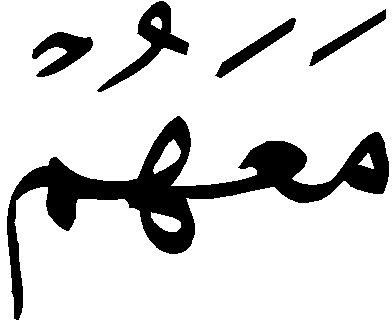 مَعَهُمْ